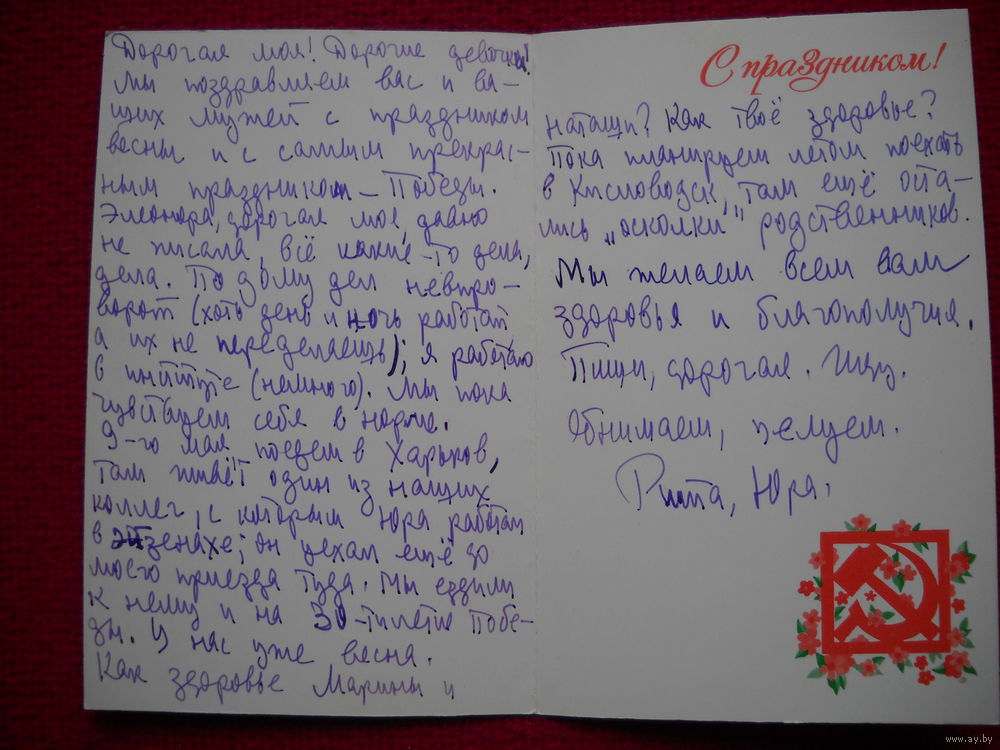 Дорогая моя! Дорогие девочки!
Мы поздравляем вас и ва-
ших мужей с праздником
весны и с самым прекрас-
ным праздником – Победы.
Элеонора, дорогая моя, давно
не писала, всё какие-то дела,
дела. По дому дел невпро-
ворот (хоть день и ночь работай
а их не переделаешь); я работаю
в институте (немного). Мы пока
чувствуем себя в норме.
9-го мая поедем в Харьков,
там живёт один из наших
коллег, с которым Юра работал
в Эйзенахе; он уехал ещё до
моего приезда туда. Мы ездили
к нему и на 30-тилетие Побе-
ды. У нас уже весна.
Как здоровье Марины и
С праздником!
Наташи? Как твоё здоровье?
Пока планируем летом поехать
в Кисловодск, там ещё оста-
лись „осколки" родственников.
Мы желаем всем вам
здоровья и благополучия.
Пиши, дорогая. Жду.
Обнимаем, целуем.
Рита, Юра.
www.ay.by